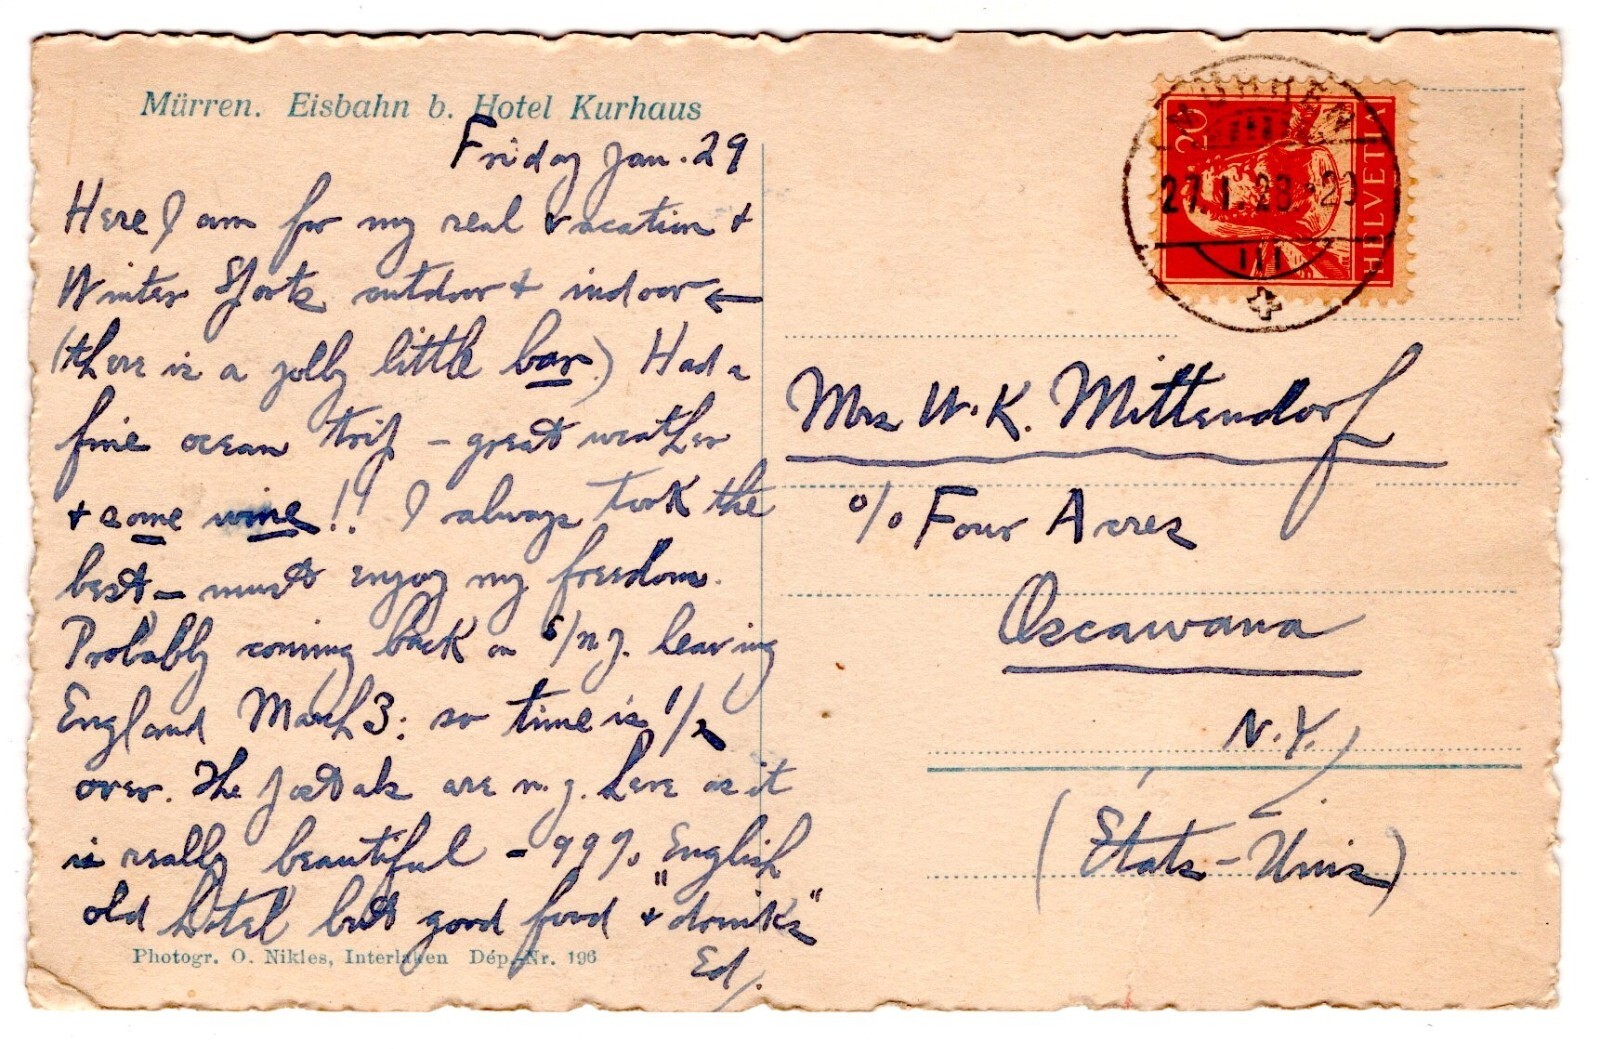 Mürren. Eisbahn b. Hotel Kurhaus
Friday Jan. 29
Here I am for my real vacation +
Winter Sports outdoor + indoor ←
(there is a jolly little bar) Had a
fine ocean trip – great weather
+ some wine!! I always took the
best – must enjoy my freedom.
Probably coming back on S/ leaving
England March 3: so time is 1/2
over. The postals are n.g. here as it
is really beautiful – 99% English
old hotel but good food + "drinks"
Ed.
Photogr. O. Nikles, Interlaken Dép.-Nr. 196
MÜRREN
27.I.28.-20
20
HELVETIA
Mrs W. K. Mittendorf
% Four Acres
Oscawana
N.Y.
(États-Unis)